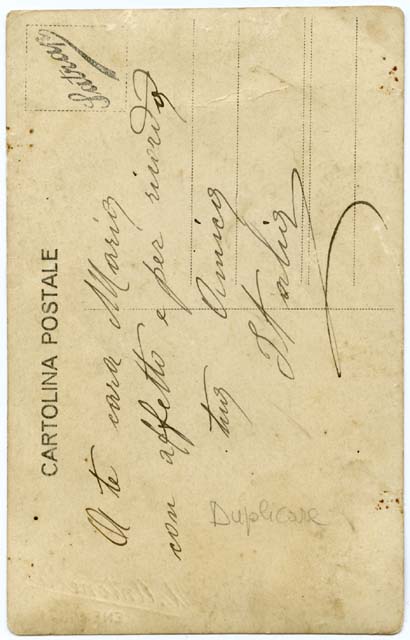 CARTOLINA POSTALE
A te cara Maria
con affetto e per ricordo
tua Amica
Italia
Duplicare